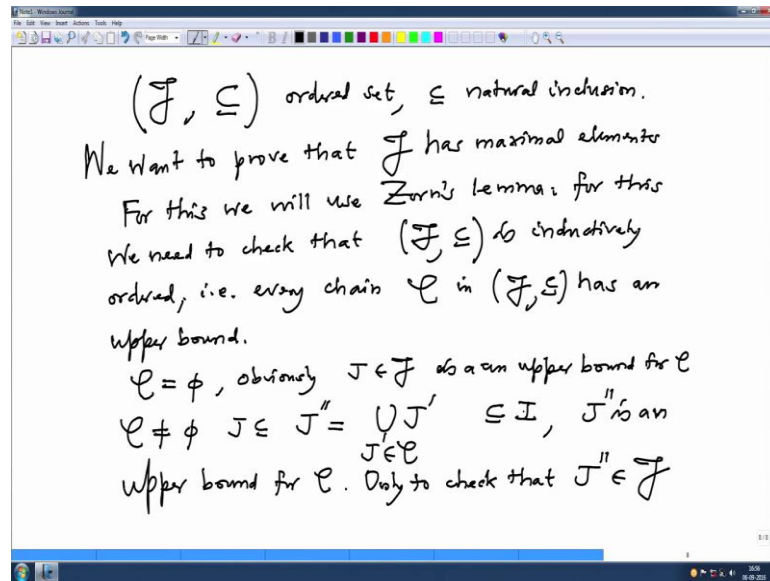 Note1 - Windows Journal
File Edit View Insert Actions Tools Help
Page Width
(𝒥, ⊆) ordered set, ⊆ natural inclusion.
We want to prove that 𝒥 has maximal elements
For this we will use Zorn's lemma: for this
we need to check that (𝒥, ⊆) is inductively
ordered, i.e. every chain 𝒞 in (𝒥, ⊆) has an
upper bound.
𝒞 = φ, obviously J ∈ 𝒥 is a an upper bound for 𝒞
𝒞 ≠ φ J ⊆ J'' = ∪ J' ⊆ I, J'' is an
J' ∈ 𝒞
upper bound for 𝒞. Only to check that J'' ∈ 𝒥
8/8
8
16:56
06-09-2016